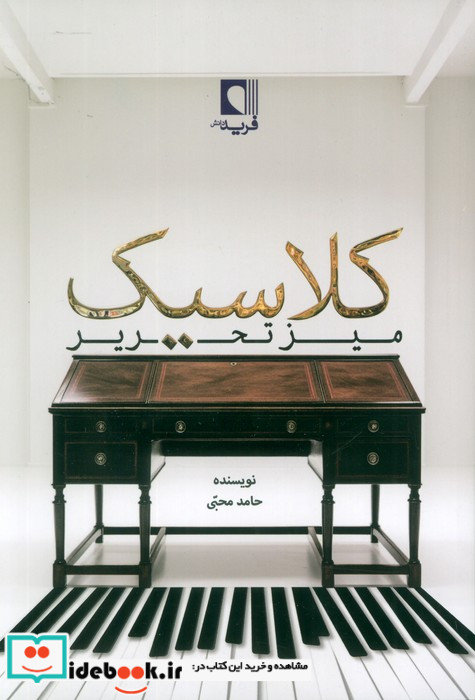 فرید دانش
کلاسیک
میز تحریر
نویسنده
حامد محبّی
مشاهده و خرید این کتاب در:
idebook.ir